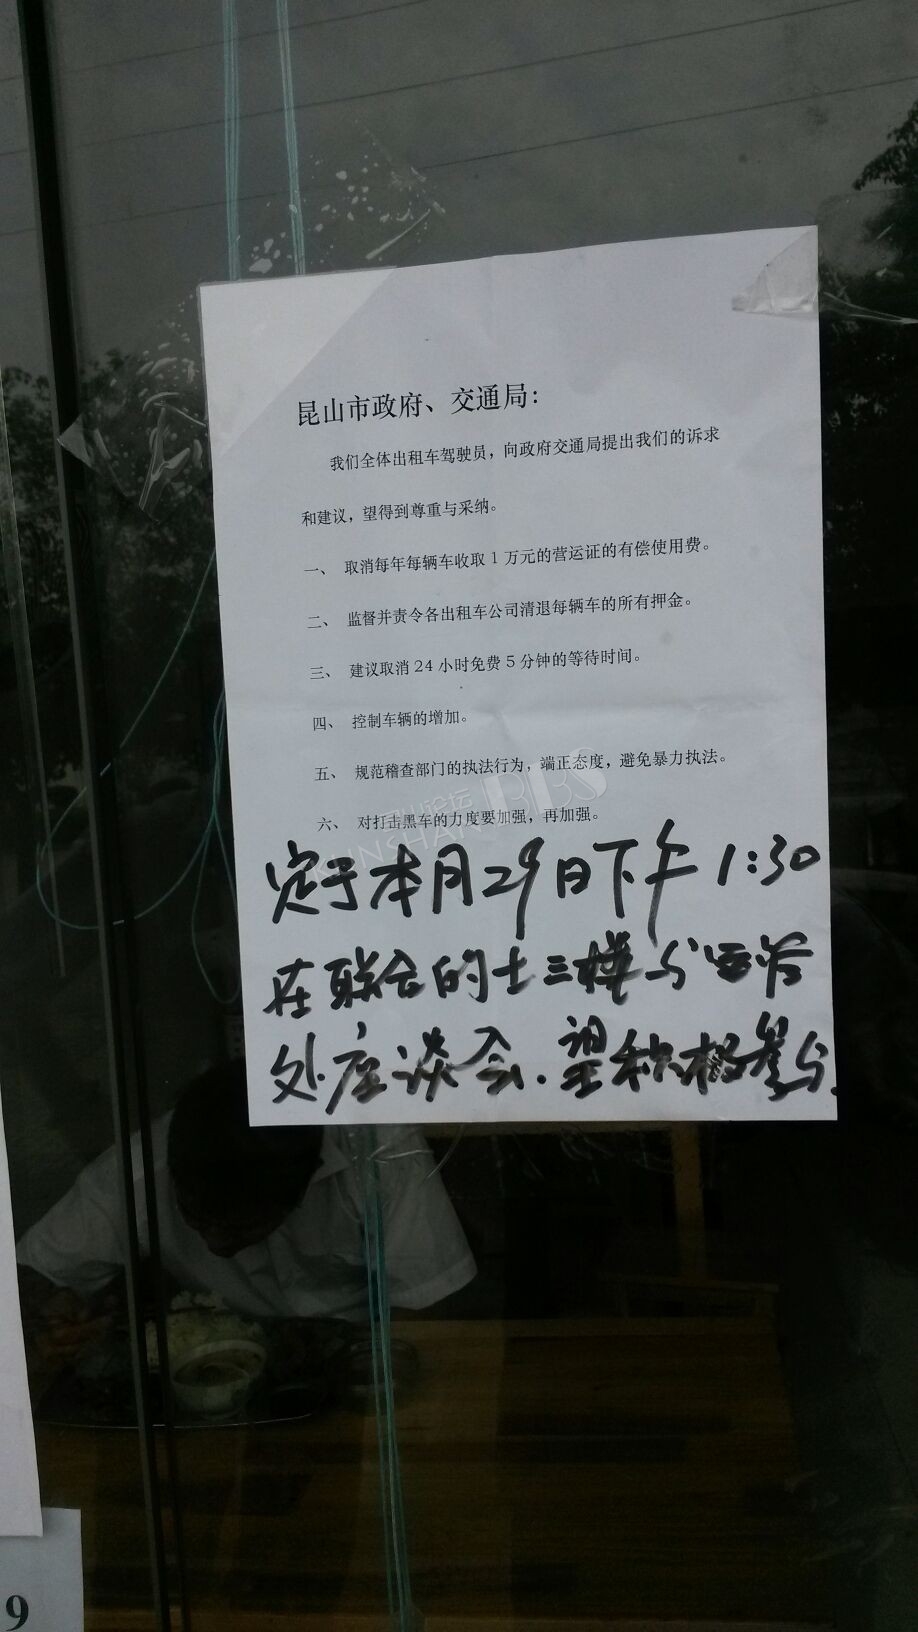 昆山市政府、交通局：
我们全体出租车驾驶员，向政府交通局提出我们的诉求
和建议，望得到尊重与采纳。
一、 取消每年每辆车收取1万元的营运证的有偿使用费。
二、 监督并责令各出租车公司清退每辆车的所有押金。
三、 建议取消24小时免费5分钟的等待时间。
四、 控制车辆的增加。
五、 规范稽查部门的执法行为，端正态度，避免暴力执法。
六、 对打击黑车的力度要加强，再加强。
昆山论坛 BBS
KUNSHAN
定于本月29日下午1:30
在联合的士三楼与运管
处座谈会.望积极参与.
9